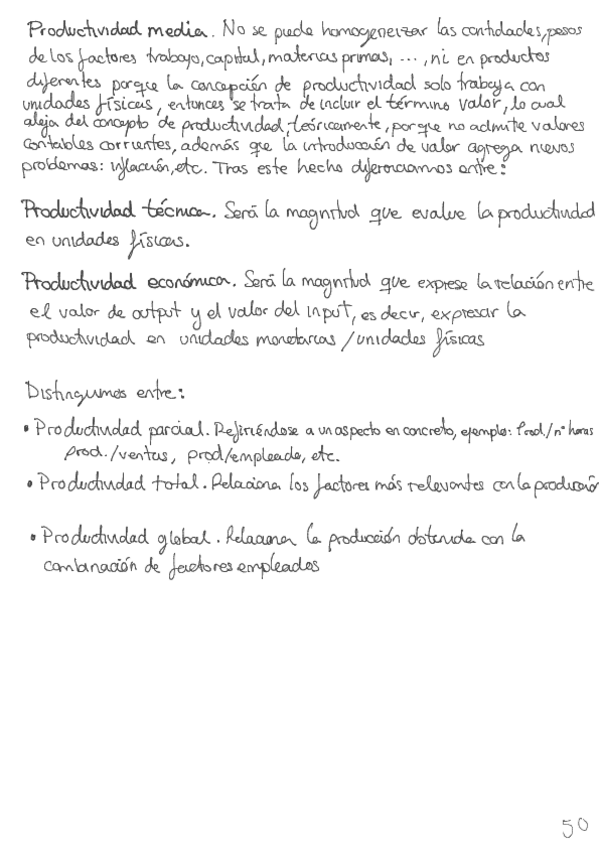 Productividad media. No se puede homogeneizar las cantidades, pesos
de los factores trabajo, capital, materias primas, ..., ni en productos
diferentes porque la concepción de productividad solo trabaja con
unidades físicas, entonces se trata de incluir el término valor, lo cual
aleja del concepto de productividad, teóricamente, porque no admite valores
contables corrientes, además que la introducción de valor agrega nuevos
problemas: inflación, etc. Tras este hecho diferenciamos entre:
Productividad técnica. Será la magnitud que evalue la productividad
en unidades físicas.
Productividad económica. Será la magnitud que exprese la relación entre
el valor de output y el valor del input, es decir, expresar la
productividad en unidades monetarias / unidades físicas
Distinguimos entre:
• Productividad parcial. Refiriéndose a un aspecto en concreto, ejemplo: Prod./nº horas
Prod./ventas, prod/empleado, etc.
• Productividad total. Relaciona los factores más relevantes con la producción
• Productividad global. Relaciona la producción obtenida con la
combinación de factores empleados
50